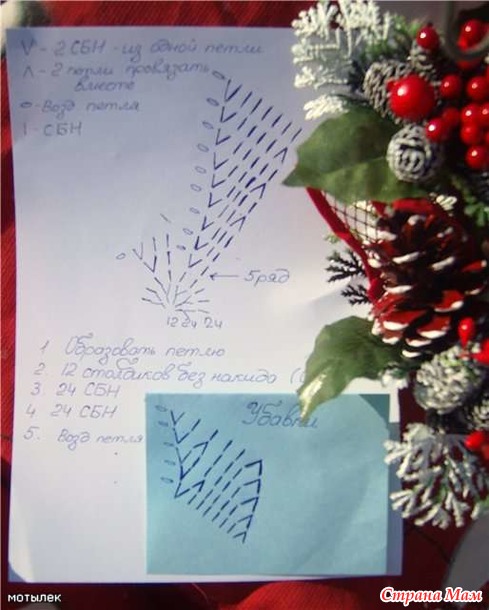 V - 2 СБН - из одной петли
Λ - 2 петли провязать
вместе
о - Возд петля
I - СБН
5 ряд
12 24 24
1 Образовать петлю
2 12 столбиков без накида (
3. 24 СБН
4. 24 СБН
5. Возд петля
Убавки
мотылек
Страна Мам